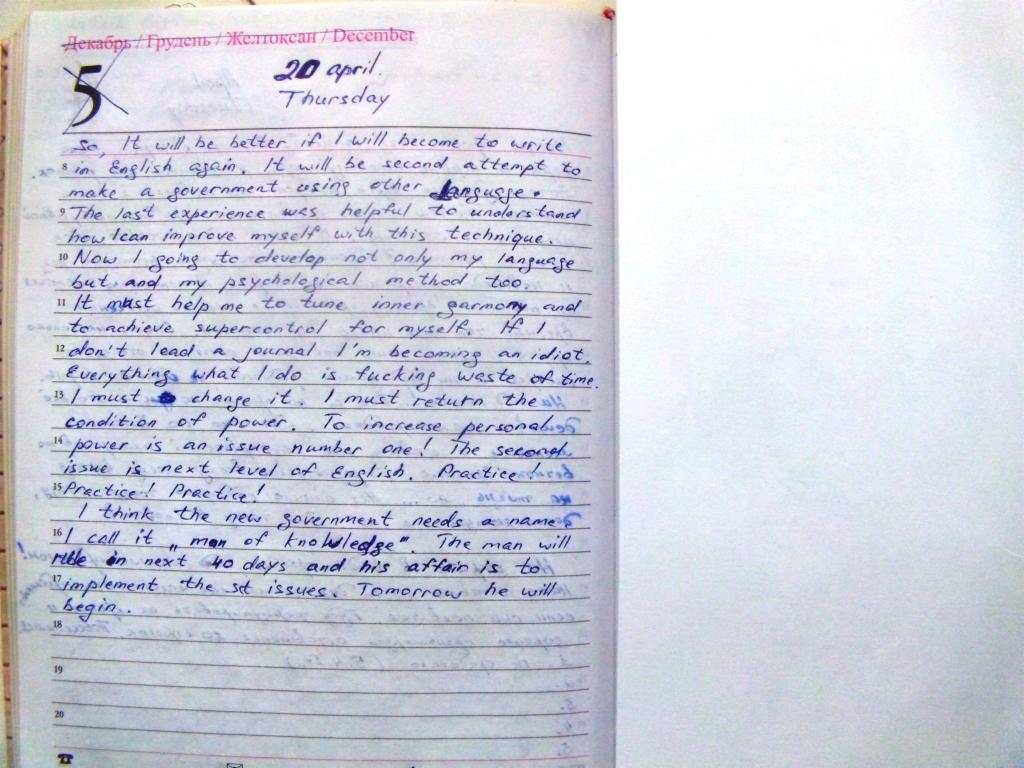 Декабрь / Грудень / Желтоксан / December
5
20 april.
Thursday
So, It will be better if I will become to write
8 in English again. It will be second attempt to
make a government using other language.
9 The last experience was helpful to understand
how I can improve myself with this technique.
10 Now I going to develop not only my language
but and my psychological method too.
11 It must help me to tune inner garmony and
to achieve supercontrol for myself. If I
12 don't lead a journal I'm becoming an idiot.
Everything what I do is fucking waste of time.
13 I must change it. I must return the
condition of power. To increase personal
14 power is an issue number one! The second
issue is next level of English. Practice!
15 Practice! Practice!
I think the new government needs a name.
16 I call it „man of knowledge". The man will
rule in next 40 days and his affair is to
17 implement the st issues. Tomorrow he will
begin.
18
19
20